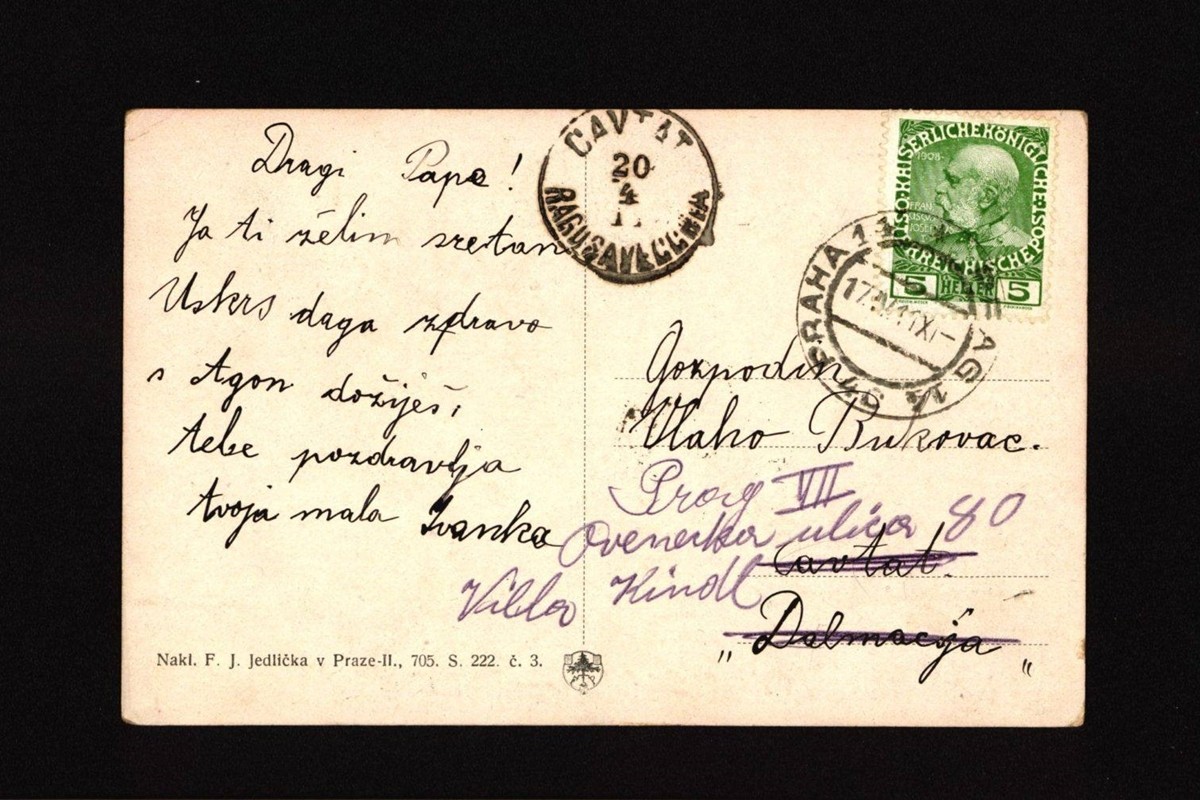 Dragi Papa!
Ja ti želim sretan
Uskrs daga zdravo
s Agon dožiješ,
tebe pozdravlja
tvoja mala Ivanka
CAVTAT
20
4
RAGUSAVECCHIA
1908
KAISERLICHEKÖNIGLICHE
ÖSTERREICHISCHE POST
5 HELLER 5
PRAHA
17
Gospodin
Vlaho Bukovac.
Prag VII
Ovenecka ulica 80
Cavtat.
Villa Kindl
„Dalmacija“
Nakl. F. J. Jedlička v Praze-II., 705. S. 222. č. 3.